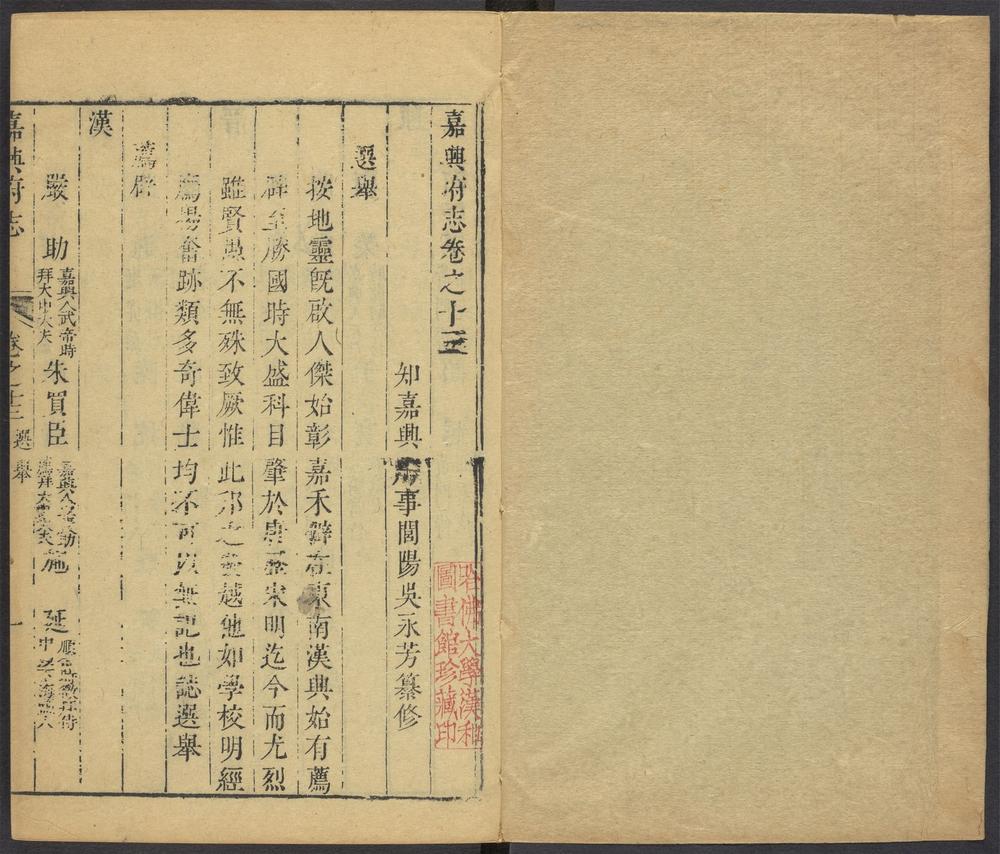 嘉興府志卷之十三
知嘉興府事閭陽吳永芳纂修
選舉
按地靈旣啟人傑始彰嘉禾僻在東南漢興始有薦
辟至勝國時大盛科目肇於唐歷宋明迄今而尤烈
雖賢愚不無殊致厥惟此邦之登越他如學校明經
鷹揚奮跡類多奇偉士均不可以無記也誌選舉
薦辟
漢
嚴助 嘉興人武帝時拜大中大夫 朱買臣 嘉興人 施延 順帝
嘉興府志 卷之十三 選舉 一
哈佛大學漢和圖書館珍藏印